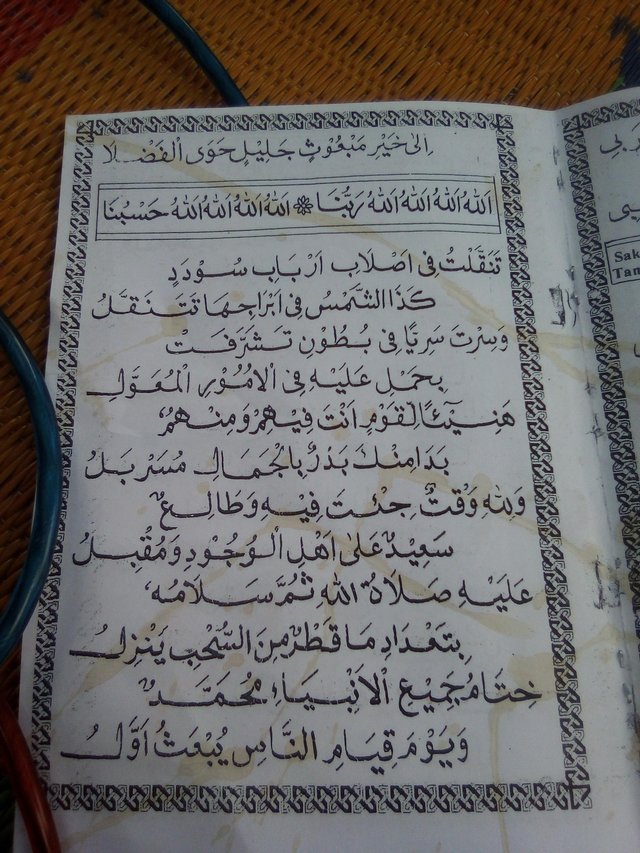 اِلٰى خَيْرِ مَبْعُوثٍ جَلِيْلٍ حَوَى الْفَضْلَا
اَللهُ اَللهُ اَللهُ اَللهُ رَبُّنَا ❁ اَللهُ اَللهُ اَللهُ اَللهُ حَسْبُنَا
تَنَقَّلْتَ فِى اَصْلَابِ اَرْبَابِ سُوْدَدٍ
كَذَا الشَّمْسُ فِى اَبْرَاجِهَا تَتَنَقَّلُ
وَسِرْتَ سَرِيًّا فِى بُطُوْنٍ تَشَرَّفَتْ
بِحَمْلٍ عَلَيْهِ فِى الْاُمُوْرِ الْمُعَوَّلِ
هَنِيْئًا لِقَوْمٍ اَنْتَ فِيْهِمْ وَمِنْهُمُ
بَدَا مِنْكَ بَدْرٌ بِالْجَمَالِ مُسَرْبَلُ
وَلِلّٰهِ وَقْتٌ جِئْتَ فِيْهِ وَطَالِعٌ
سَعِيْدٌ عَلٰى اَهْلِ الْوُجُوْدِ وَمُقْبِلُ
عَلَيْهِ صَلَاةُ اللهِ ثُمَّ سَلَامُهُ
بِتَعْدَادِ مَا قَطْرٌ مِنَ السُّحْبِ يَنْزِلُ
خِتَامُ جَمِيْعِ الْاَنْبِيَاءِ مُحَمَّدٌ
وَيَوْمَ قِيَامِ النَّاسِ يُبْعَثُ اَوَّلُ